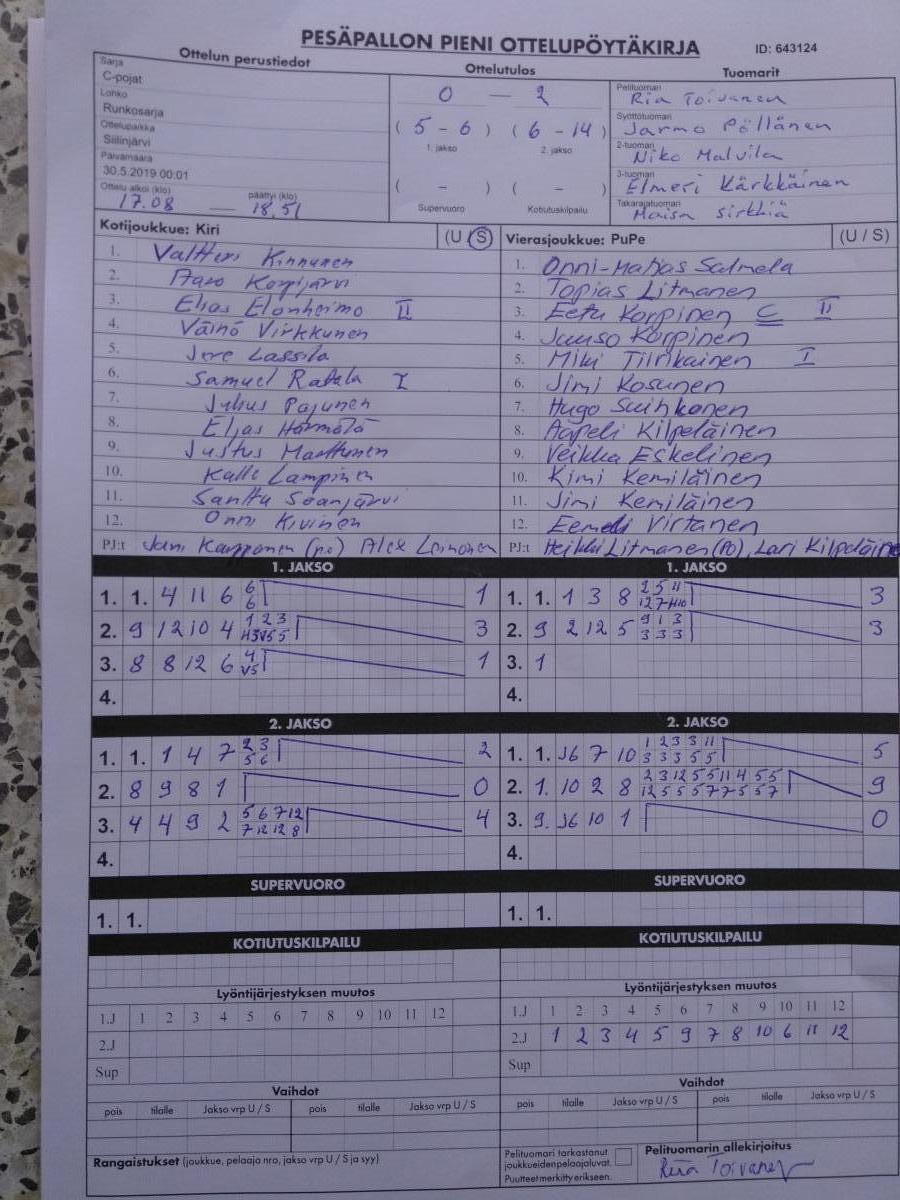 PESÄPALLON PIENI OTTELUPÖYTÄKIRJA ID: 643124
Ottelun perustiedot Ottelutulos Tuomarit
Sarja
C-pojat
Lohko
Runkosarja
Ottelupaikka
Siilinjärvi
Päivämäärä
30.5.2019 00:01
Ottelu alkoi (klo) päättyi (klo)
17.08 — 18.51
0 — 2
(5 - 6) (6 - 14)
1. jakso 2. jakso
( - ) ( - )
Supervuoro Kotiutuskilpailu
Pelituomari
Ria Toivanen
Syöttötuomari
Jarmo Pöllänen
2-tuomari
Niko Malvila
3-tuomari
Elmeri Kärkkäinen
Takarajatuomari
Maisa Sirkkiä
Kotijoukkue: Kiri (U / S)
1. Valtteri Kinnunen
2. Aaro Korpijärvi
3. Elias Elonheimo II
4. Väinö Virkkunen
5. Jere Lassila
6. Samuel Ratala I
7. Julius Pajunen
8. Elias Härmälä
9. Justus Marttunen
10. Kalle Lampinen
11. Santtu Soanjärvi
12. Onni Kivinen
PJ:t Jani Karpponen (pe) Alex Leinonen
Vierasjoukkue: PuPe (U / S)
1. Onni-Matias Salmela
2. Topias Litmanen
3. Eetu Korpinen C II
4. Juuso Korpinen
5. Miki Tiirikainen I
6. Jimi Kosunen
7. Hugo Suihkonen
8. Aapeli Kilpeläinen
9. Veikka Eskelinen
10. Kimi Kemiläinen
11. Jimi Kemiläinen
12. Eemeli Virtanen
PJ:t Heikki Litmanen (Po), Lari Kilpeläinen
1. JAKSO
1. 1. 4 11 6 6 1
6
2. 9 12 10 4 1 2 3 3
3. 8 8 12 6 4 1
4.
1. JAKSO
1. 1. 1 3 8 2 5 11 3
2. 9 2 12 5 9 1 3 3
3 3 3
3. 1
4.
2. JAKSO
1. 1. 1 4 7 2 3 2
5 6
2. 8 9 8 1 0
3. 4 4 9 2 5 6 7 12 4
7 12 12 8
4.
2. JAKSO
1. 1. J6 7 10 1 2 3 3 11 5
3 3 3 5 5
2. 1. 10 2 8 2 3 12 5 5 11 4 5 5 9
12 5 5 5 7 7 5 5 7
3. 9. J6 10 1 0
4.
SUPERVUORO
1. 1.
SUPERVUORO
1. 1.
KOTIUTUSKILPAILU
Lyöntijärjestyksen muutos
1.J 1 2 3 4 5 6 7 8 9 10 11 12
2.J
Sup
Vaihdot
pois tilalle Jakso vrp U / S pois tilalle Jakso vrp U / S
KOTIUTUSKILPAILU
Lyöntijärjestyksen muutos
1.J 1 2 3 4 5 6 7 8 9 10 11 12
2.J 1 2 3 4 5 9 7 8 10 6 11 12
Sup
Vaihdot
pois tilalle Jakso vrp U / S pois tilalle Jakso vrp U / S
Rangaistukset (joukkue, pelaaja nro, jakso vrp U / S ja syy)
Pelituomari tarkastanut
joukkueiden pelaajaluvat.
Puutteet merkitty erikseen.
Pelituomarin allekirjoitus
Ria Toivanen